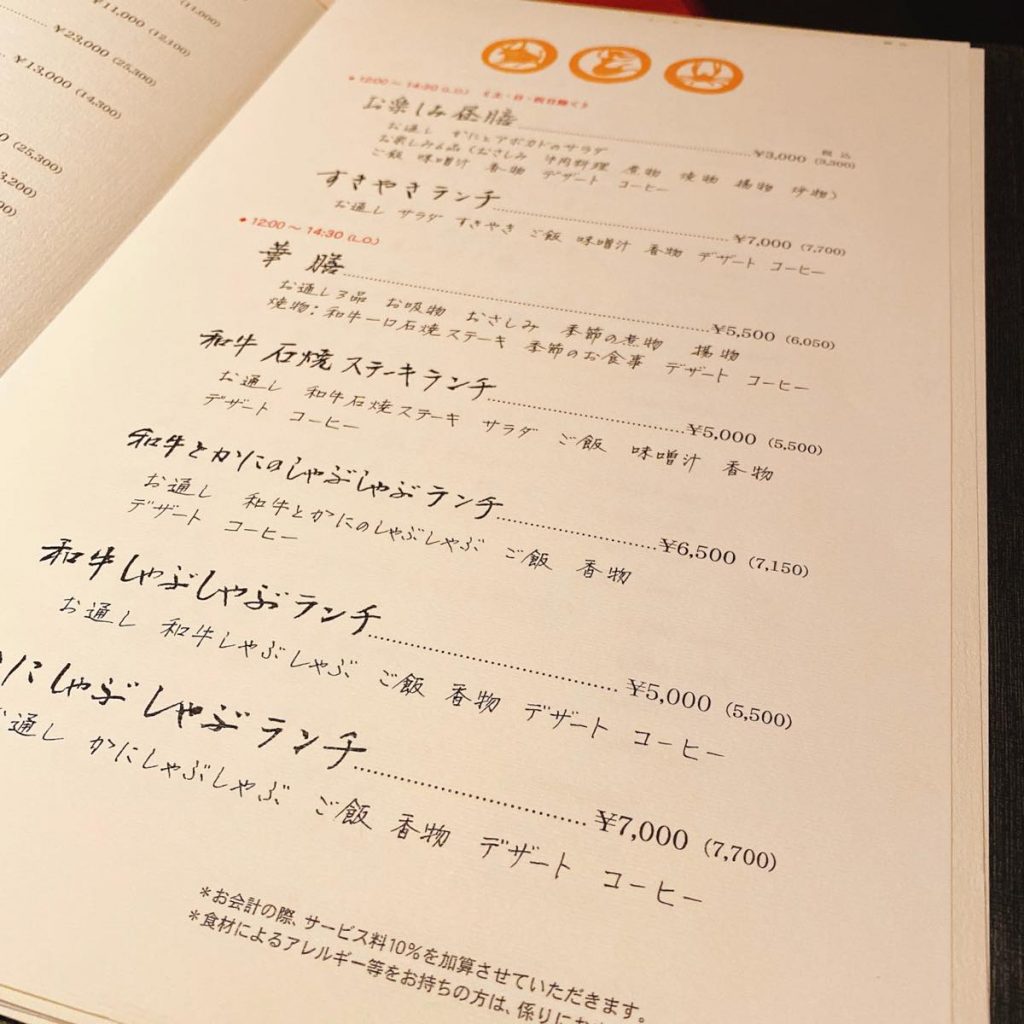 ¥11,000 (12,100)
¥23,000 (25,300)
¥13,000 (14,300)
(25,300)
◆12:00～14:30 (L.O.) 《土・日・祝日除く》
税込
お楽しみ昼膳 ¥3,000 (3,300)
お通し かにとアボカドのサラダ
お楽しみ6品 (おさしみ 牛肉料理 煮物 焼物 揚物 酢物)
ご飯 味噌汁 香物 デザート コーヒー
すきやきランチ ¥7,000 (7,700)
お通し サラダ すきやき ご飯 味噌汁 香物 デザート コーヒー
◆12:00～14:30 (L.O.)
華膳 ¥5,500 (6,050)
お通し3品 お吸物 おさしみ 季節の煮物 揚物
焼物:和牛一口石焼ステーキ 季節のお食事 デザート コーヒー
和牛石焼ステーキランチ ¥5,000 (5,500)
お通し 和牛石焼ステーキ サラダ ご飯 味噌汁 香物
デザート コーヒー
和牛とかにのしゃぶしゃぶランチ ¥6,500 (7,150)
お通し 和牛とかにのしゃぶしゃぶ ご飯 香物
デザート コーヒー
和牛しゃぶしゃぶランチ ¥5,000 (5,500)
お通し 和牛しゃぶしゃぶ ご飯 香物 デザート コーヒー
かにしゃぶしゃぶランチ ¥7,000 (7,700)
お通し かにしゃぶしゃぶ ご飯 香物 デザート コーヒー
＊お会計の際、サービス料10%を加算させていただきます。
＊食材によるアレルギー等をお持ちの方は、係りに